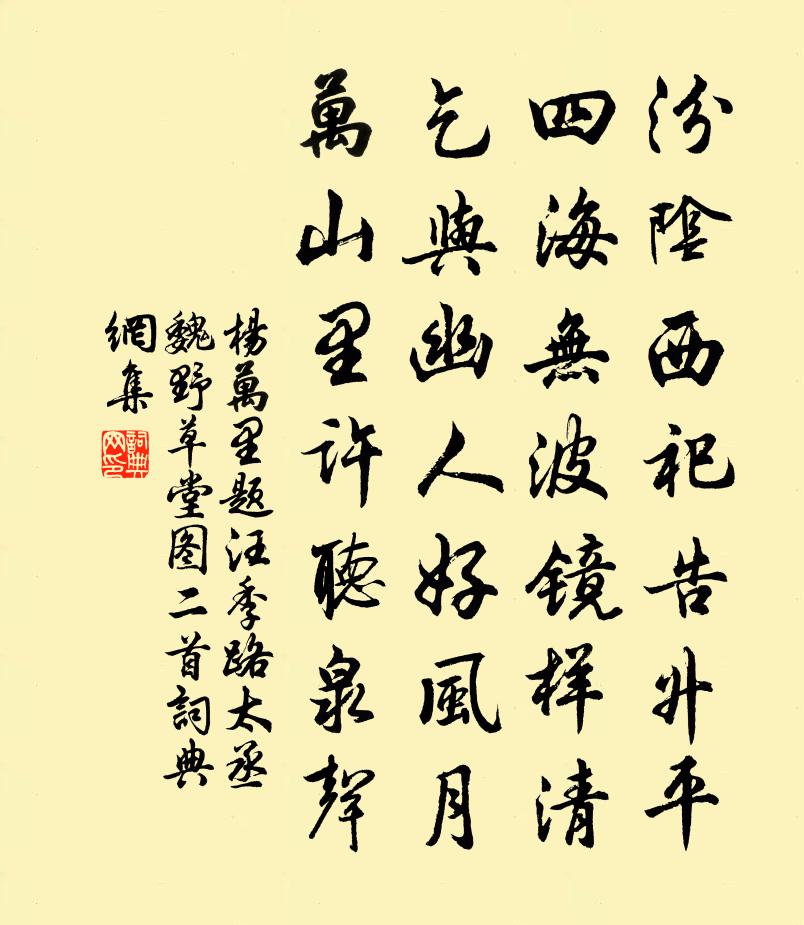 汾陰西祀告升平
四海無波镜样清
乞與幽人好風月
萬山里许聽泉聲
楊萬里题汪季路太丞
魏野草堂图二首詞典
網集
詞典
网印